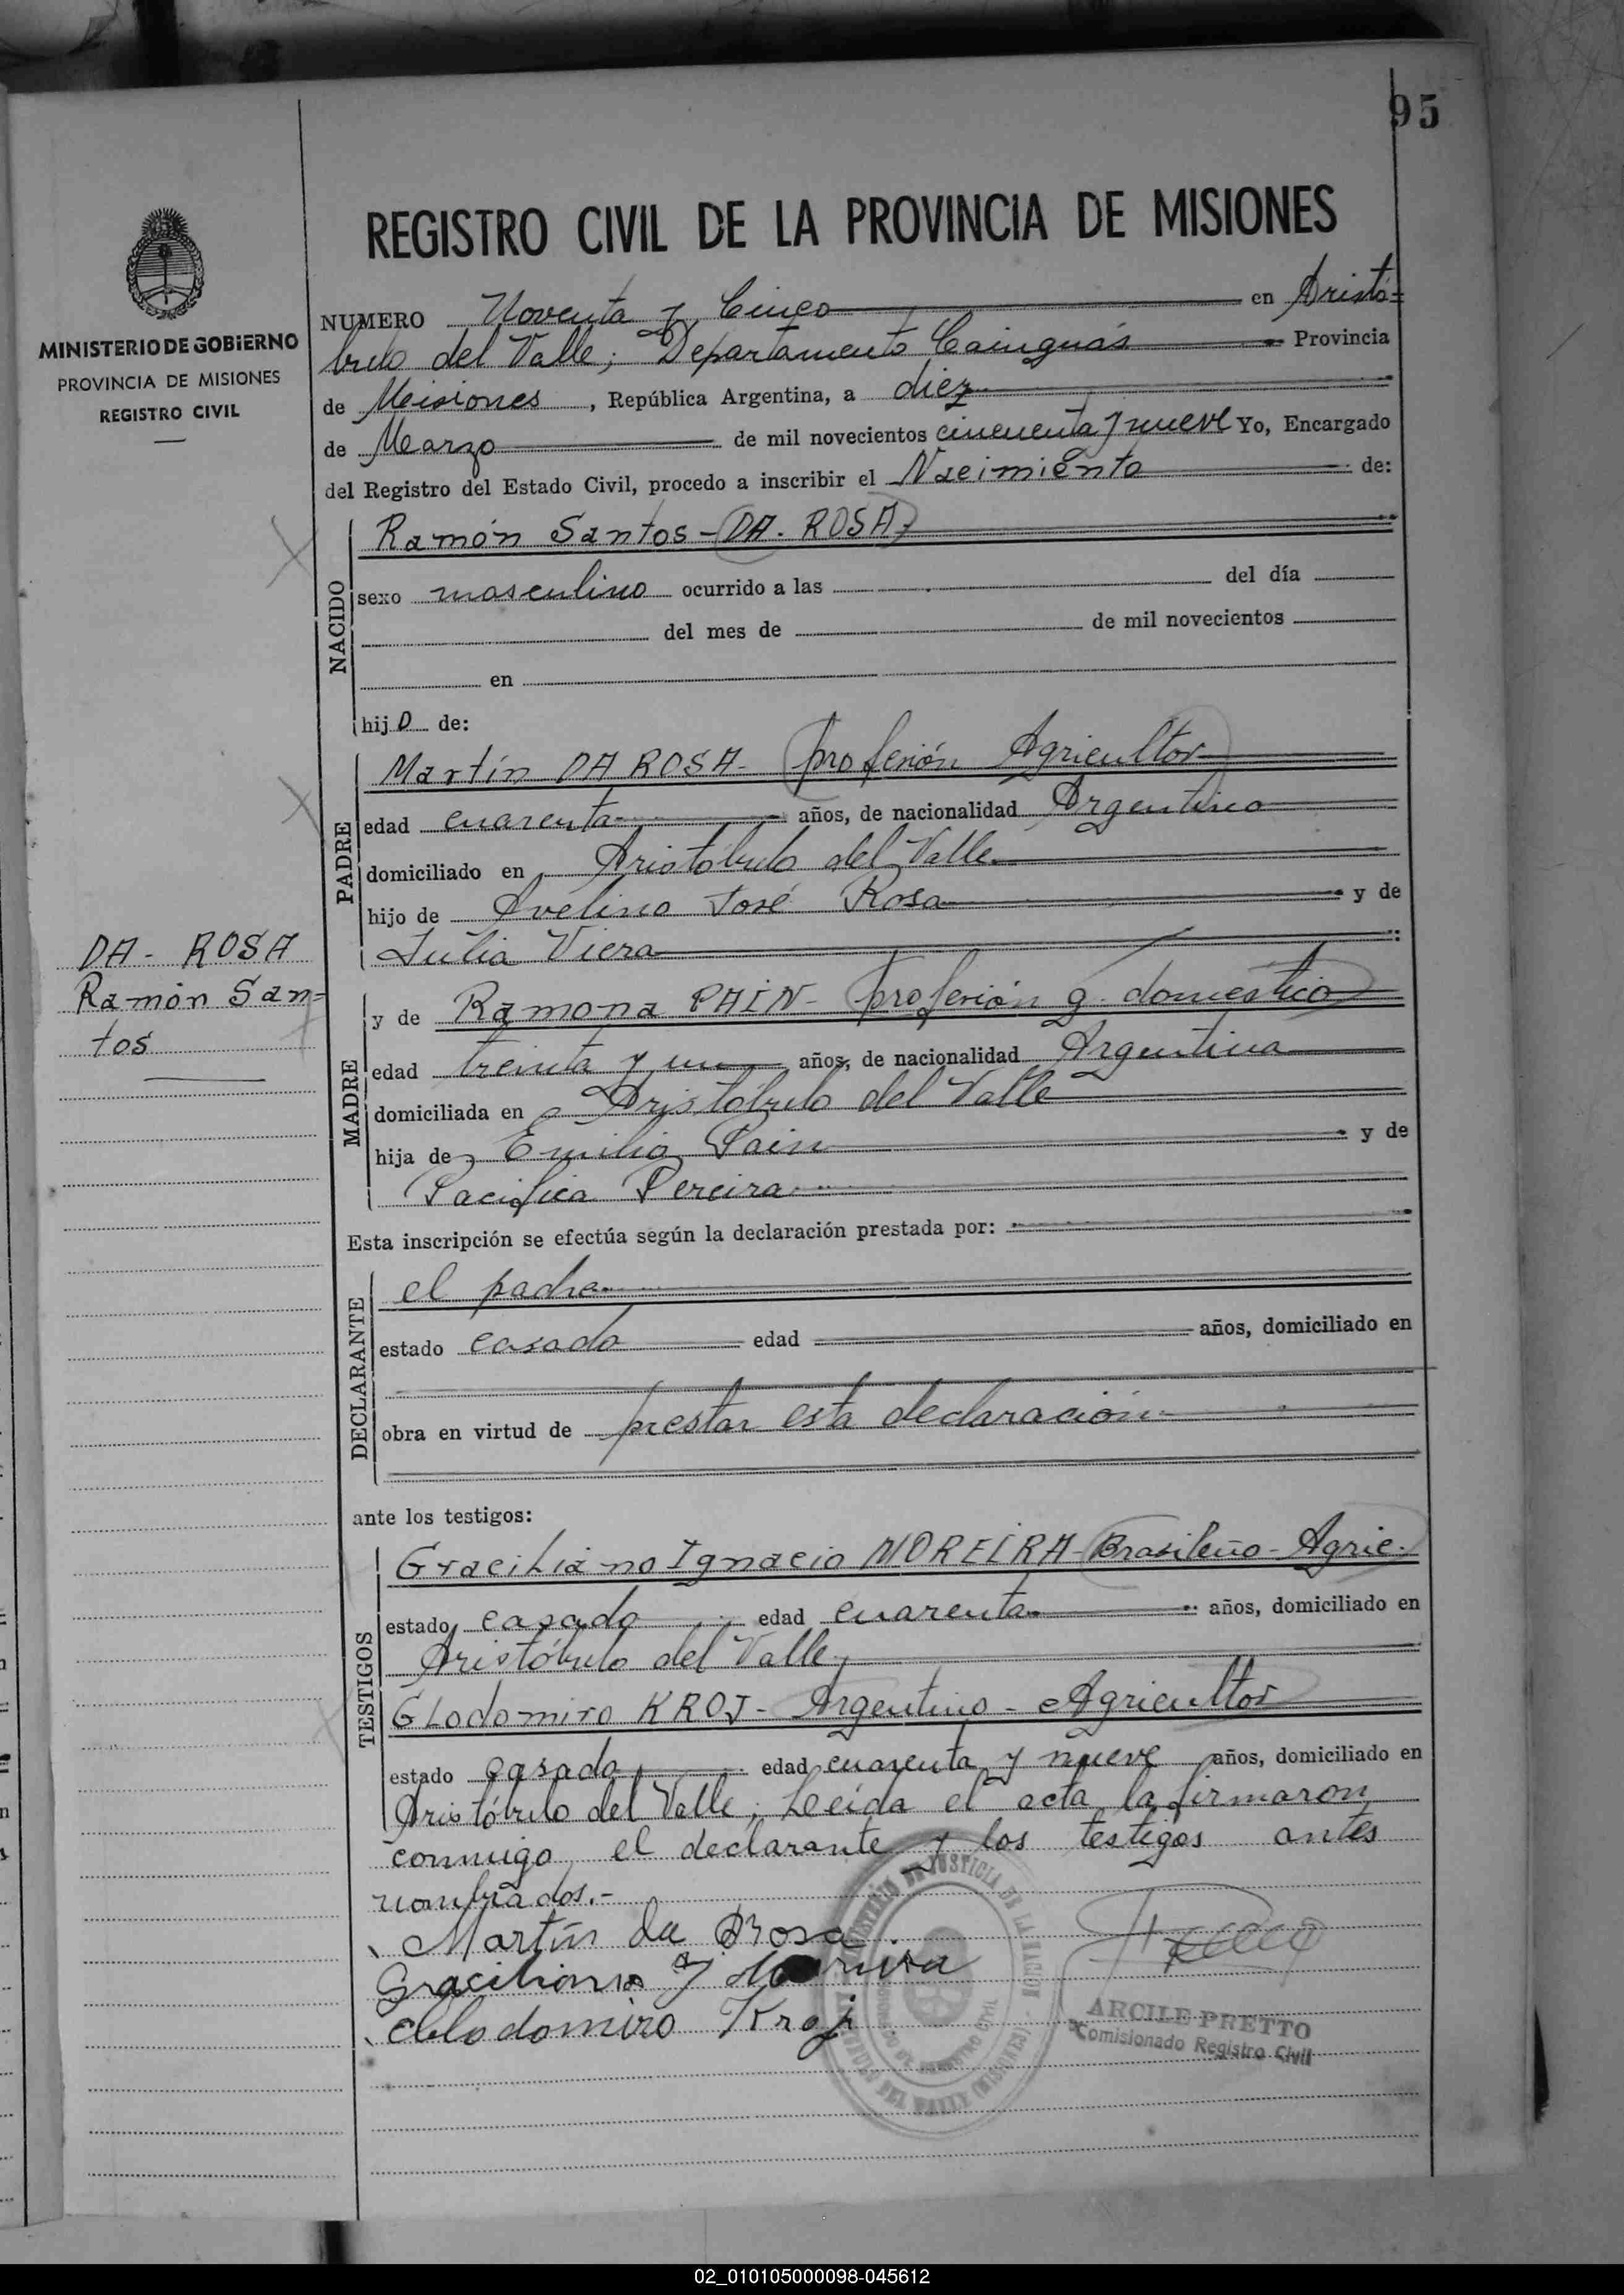 95
REGISTRO CIVIL DE LA PROVINCIA DE MISIONES
MINISTERIO DE GOBIERNO
PROVINCIA DE MISIONES
REGISTRO CIVIL
NUMERO Noventa y Cinco en Aristó=
bulo del Valle; Departamento Cainguás Provincia
de Misiones, República Argentina, a diez
de Marzo de mil novecientos cincuenta y nueve Yo, Encargado
del Registro del Estado Civil, procedo a inscribir el Nacimiento de:
NACIDO
Ramón Santos - (DA. ROSA)
sexo masculino ocurrido a las del día
del mes de de mil novecientos
en
hijo de:
PADRE
Martín DA ROSA - (profesión Agricultor
edad cuarenta años, de nacionalidad Argentina
domiciliado en Aristóbulo del Valle
hijo de Avelino José Rosa y de
Julia Viera
DA - ROSA
Ramón San=
tos
MADRE
y de Ramona PAIN - (profesión q. doméstico)
edad treinta y un años, de nacionalidad Argentina
domiciliada en Aristóbulo del Valle
hija de Emilio Pain y de
Pacifica Pereira
Esta inscripción se efectúa según la declaración prestada por:
DECLARANTE
el padre
estado casado edad años, domiciliado en
obra en virtud de prestar esta declaración
ante los testigos:
TESTIGOS
Graciliano Ignacio MOREIRA (Brasileño - Agric.)
estado casado edad cuarenta años, domiciliado en
Aristóbulo del Valle
Glodomiro KROJ - Argentino - Agricultor
estado casado edad cuarenta y nueve años, domiciliado en
Aristóbulo del Valle; Leída el acta la firmaron
conmigo, el declarante y los testigos antes
nombrados.-
Martín da Rosa
Graciliano
Clodomiro Kroj
MINISTERIO DE JUSTICIA DE LA NACION
DEL VALLE (MISIONES)
ARCILE PRETTO
Comisionado Registro Civil
02_010105000098-045612